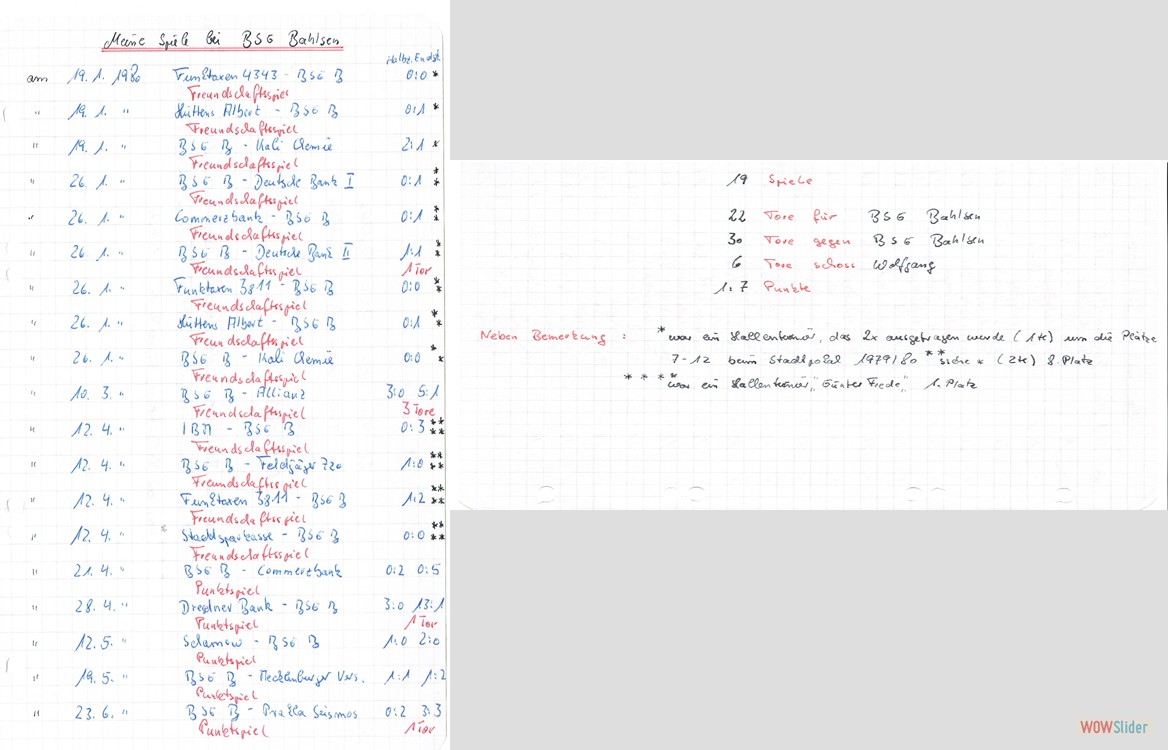 Meine Spiele bei BSG Bahlsen
Halbz. Endst.
am 19. 1. 1980 Funktaxen 4343 - BSG B 0:0 *
Freundschaftsspiel
" 19. 1. " Hüttens Albert - BSG B 0:1 *
Freundschaftsspiel
" 19. 1. " BSG B - Kali Chemie 2:1 *
Freundschaftsspiel
" 26. 1. " BSG B - Deutsche Bank I 0:1 **
Freundschaftsspiel
" 26. 1. " Commerzbank - BSG B 0:1 **
Freundschaftsspiel
" 26. 1. " BSG B - Deutsche Bank II 1:1 **
Freundschaftsspiel 1 Tor
" 26. 1. " Funktaxen 3811 - BSG B 0:0 **
Freundschaftsspiel
" 26. 1. " Hüttens Albert - BSG B 0:1 **
Freundschaftsspiel
" 26. 1. " BSG B - Kali Chemie 0:0 **
Freundschaftsspiel
" 10. 3. " BSG B - Allianz 3:0 5:1
Freundschaftsspiel 3 Tore
" 12. 4. " IBM - BSG B 0:3 ****
Freundschaftsspiel
" 12. 4. " BSG B - Feldjäger 720 1:0 ****
Freundschaftsspiel
" 12. 4. " Funktaxen 3811 - BSG B 1:2 ****
Freundschaftsspiel
" 12. 4. " Stadtsparkasse - BSG B 0:0 ****
Freundschaftsspiel
" 21. 4. " BSG B - Commerzbank 0:2 0:5
Punktspiel
" 28. 4. " Dresdner Bank - BSG B 3:0 13:1
Punktspiel 1 Tor
" 12. 5. " - BSG B 1:0 2:0
Punktspiel
" 19. 5. " BSG B - Mecklenburger Vers. 1:1 1:2
Punktspiel
" 23. 6. " BSG B - Prakla Seismos 0:2 3:3
Punktspiel 1 Tor
19 Spiele
22 Tore für BSG Bahlsen
30 Tore gegen BSG Bahlsen
6 Tore schoss Wolfgang
1:7 Punkte
Neben Bemerkung : * war ein Hallenturnier, das 2x ausgetragen wurde (1te) um die Plätze
7-12 beim Stadtpokal 1979/80 ** siehe * (2te) 8. Platz
**** war ein Hallenturnier „Günter Frede" 1. Platz
WOWSlider